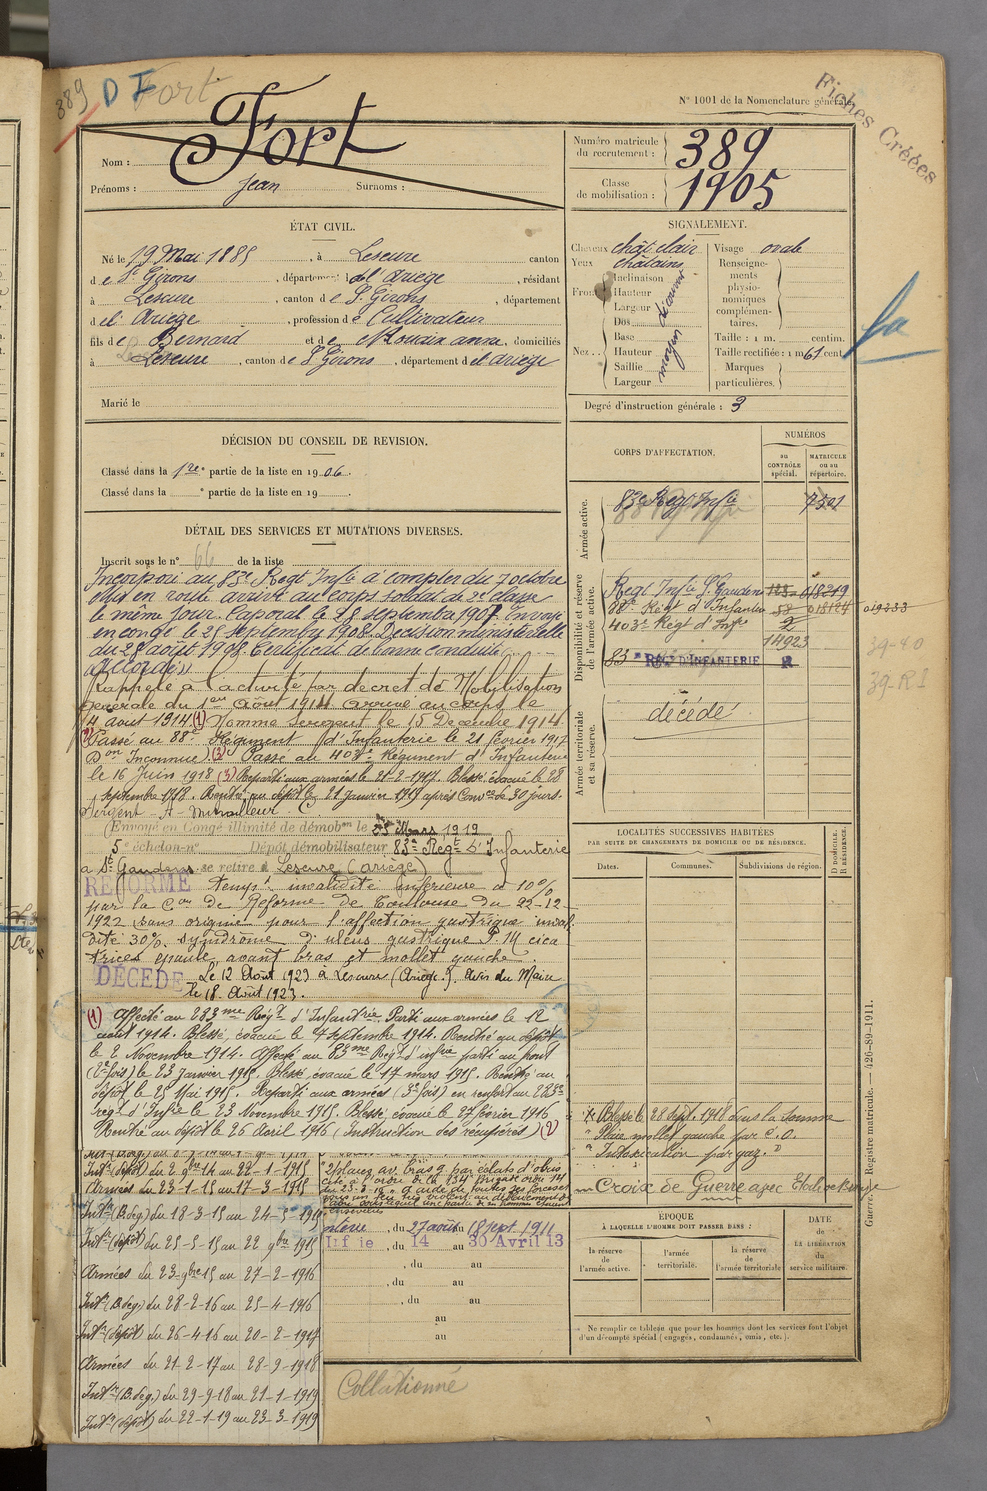 389 D F Fort
N° 1001 de la Nomenclature générale.
Fiches Créées
Nom : Fort
Prénoms : Jean Surnoms :
Numéro matricule du recrutement : 389
Classe de mobilisation : 1905
ÉTAT CIVIL.
Né le 19 Mai 1885, à Lescure canton
de St Girons, département de l'Ariège, résidant
à Lescure, canton de St Girons, département
de l'Ariège, profession de Cultivateur
fils de Bernard et de Rouaix anna, domiciliés
à Lescure, canton de St Girons, département de l'ariège
Marié le
SIGNALEMENT.
Cheveux chât. clair
Yeux châtains
Front
Inclinaison
Hauteur
Largeur
découvert
Nez
Dos
Base
Hauteur
Saillie
Largeur
moyen
Visage ovale
Renseignements physionomiques complémentaires.
Taille : 1 m. centim.
Taille rectifiée : 1 m 61 cent.
Marques particulières.
Degré d'instruction générale : 3
DÉCISION DU CONSEIL DE REVISION.
Classé dans la 1re partie de la liste en 1906.
Classé dans la e partie de la liste en 19 .
DÉTAIL DES SERVICES ET MUTATIONS DIVERSES.
Inscrit sous le n° 66 de la liste
Incorporé au 83e Regt Infie à compter du 7 octobre
1906 en route arrivé au corps soldat de 2e classe
le même jour. Caporal le 28 septembre 1907. Envoyé
en congé le 25 septembre 1908. Décision ministérielle
du 28 août 1908. Certificat de bonne conduite
accordé
Rappelé à l'activité par decret de Mobilisation
générale du 1er Août 1914 arrivé au corps le
4 aout 1914 (1) Nomme Sergent le 15 Decembre 1914.
Passé au 88e Régiment d'Infanterie le 21 février 1917
Don Inconnue (2) Passé au 403e Régiment d'Infanterie
le 16 Juin 1918 (3) Reparti aux armées le 21-2-1917. Blessé évacué le 28
septembre 1918. Rentré au dépôt le 21 janvier 1919 après Convce de 30 jours.
Sergent - A - mitrailleur
Envoyé en Congé illimité de démobon le 23 Mars 1919
5e échelon n° Dépôt démobilisateur 83e Regt d'Infanterie
a St Gaudens se retire à Lescure (ariège)
REFORME tempre invalidité inférieure à 10%
par la Con de Reforme de Toulouse du 22-12-
1922 sans origine pour l'affection gastrique inval
dité 30% syndrôme d'ulcus gastrique P. 14 cica
trices épaule avant bras et mollet gauche.
DÉCÉDÉ Le 12 Août 1923 à Lescure (Ariège). Avis du Maire
le 18 Août 1923.
(1) Affecté au 283me Régt d'Infanterie. Parti aux armées le 12
août 1914. Blessé, évacué le 4 septembre 1914. Rentré au dépôt
le 2 Novembre 1914. Affecté au 83me Regt d'infie parti au front
(2e fois) le 23 janvier 1915. Blessé évacué le 17 mars 1915. Rentré au
dépôt le 25 Mai 1915. Reparti aux armées (3e fois) en renfort au 283e
régt d'Infie le 23 Novembre 1915. Blessé évacué le 27 février 1916
Rentré au dépôt le 26 Avril 1916 (Instruction des récupérés) (2)
Intr (dépôt) du 2 9bre 14 au 22-1-1915
Armées du 23-1-15 au 17-3-1915
Intr (B. deg.) du 18-3-15 au 24-5-1915
Intr (dépôt) du 25-5-15 au 22 9bre 1915
Armées du 23-9bre 15 au 27-2-1916
Intr (B. deg.) du 28-2-16 au 25-4-1916
Intr (dépôt) du 26-4-16 au 20-2-1917
Armées du 21-2-17 au 28-9-1918
Intr (B. deg.) du 29-9-18 au 21-1-1919
Intr (dépôt) du 22-1-19 au 23-3-1919
2 plaies av. bras g par éclats d'obus
cité à l'ordre de la 134e Brigade
du 27 août au 18 sept. 1911
Infie, du 14 au 30 Avril 13
, du au
, du au
, du au
au
au
Collationné
CORPS D'AFFECTATION.
NUMÉROS
au CONTRÔLE spécial.
MATRICULE ou au répertoire.
Armée active.
83e Regt Infie 7501
Disponibilité et réserve de l'armée active.
Regt Infie St Gaudens 018219
88e Régt d'Infanterie 58 018124 019233
403e Régt d'Infie 2
14923
83e RÉGt D'INFANTERIE
39-40
39-RI
Armée territoriale et sa réserve.
décédé
LOCALITÉS SUCCESSIVES HABITÉES
PAR SUITE DE CHANGEMENTS DE DOMICILE OU DE RÉSIDENCE.
Dates. Communes. Subdivisions de région.
D DOMICILE. R RÉSIDENCE.
Blessé le 28 Sept. 1918 dans la Somme
Plaie mollet gauche par é. o.
Intoxication par gaz.
Croix de Guerre avec Etoile de Bronze
ÉPOQUE
À LAQUELLE L'HOMME DOIT PASSER DANS :
la réserve de l'armée active.
l'armée territoriale.
la réserve de l'armée territoriale
DATE de LA LIBÉRATION du service militaire.
Ne remplir ce tableau que pour les hommes dont les services font l'objet
d'un décompte spécial (engagés, condamnés, omis, etc.).
Guerre. — Registre matricule. — 426-89-1911.